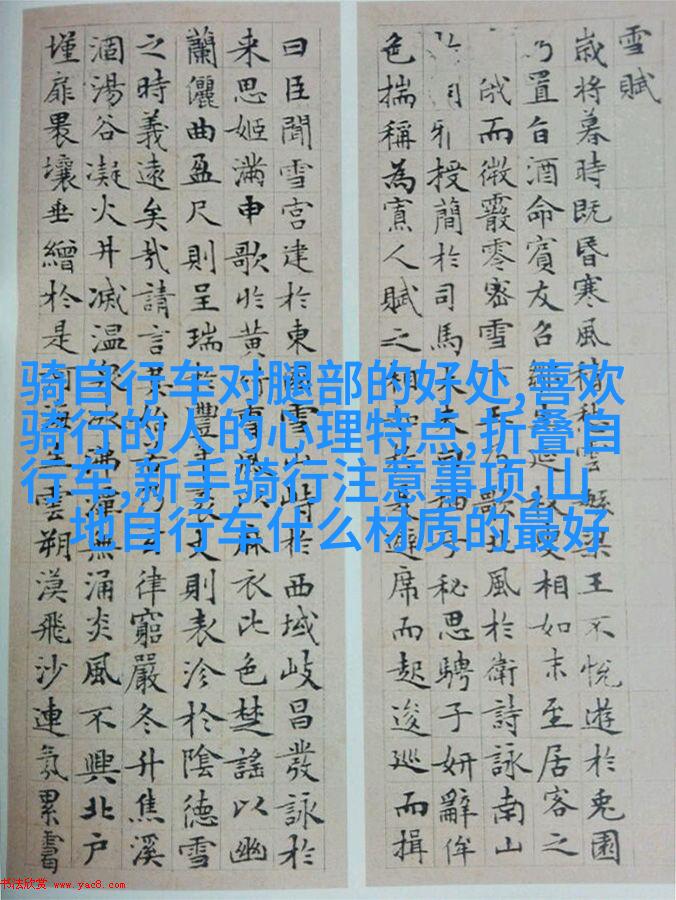 雪賦
歲將暮時既昏寒風積愁雲繁梁王不悅遊於兎園
置旨酒命賓友召延枚叟相如末至居客之
俄而微霰零密雪歌北風於衛詩詠南山
授簡於司馬秘思騁子妍辭侔
色揣稱為寡人賦之相如於是避席而起逡巡而揖
曰臣聞雪宮建於東國雪山峙於西域岐昌發詠於
来思姬滿申歌於黃竹曹風以麻衣比色楚謠以幽
蘭儷曲盈尺則呈瑞於豐年袤丈則表沴於陰德雪
之時義遠矣哉請言其始若乃玄律窮嚴冬升焦溪
涸湯谷凝火井滅温泉冰沸潭無涌炎風不興北户
墐扉裸壤垂繒於是河海生雲朔漠飛沙連氛累靄
骑自行车对腿部的好处,喜欢
骑行的人的心理特点,折叠自
行车,新手骑行注意事项,山
地自行车什么材质的最好
书法欣赏 www.yac8.com